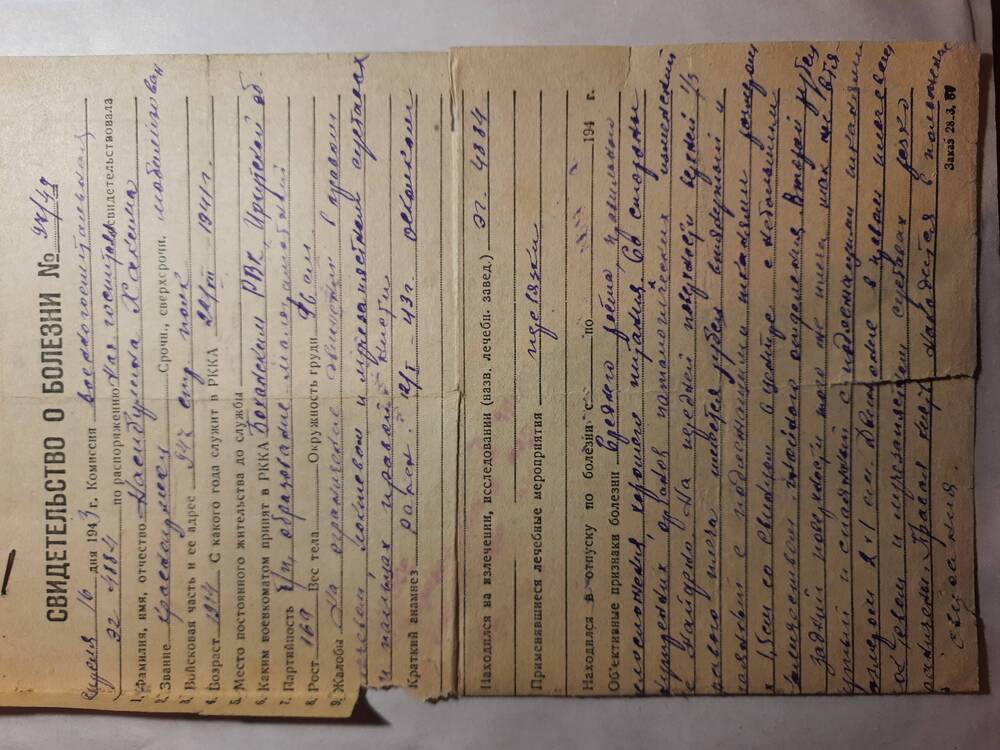 СВИДЕТЕЛЬСТВО О БОЛЕЗНИ № 94/49
июля 16 дня 1943 г. Комиссия военногоспитальная
по распоряжению нач госпиталя свидетельствовала
эг 4884
1. Фамилия, имя, отчество Насибулина Хакима
2. Звание красноармеец Срочн., сверхсрочн. мобилизован
3. Войсковая часть и ее адрес 947 стр полк
4. Возраст 1914 С какого года служит в РККА 22/VIII-1941 г.
5. Место постоянного жительства до службы
6. Каким военкоматом принят в РККА Боханским РВК, Иркутской об.
7. Партийность б/п, образование малограмотный
8. Рост 169 Вес тела Окружность груди 96 см
9. Жалобы На ограничение движений в правом
плечевом локтевом и лучезапястном суставах
и пальцах правой кисти
Краткий анамнез ранен. 12/I-43 г. осколком
Находился на излечении, исследовании (назв. лечебн. завед.) эг 4884
Применявшиеся лечебные мероприятия перевязки
Находился в отпуску по болезни с по 194 г.
Объективные признаки болезни Среднего роста, правильного
телосложения, хорошего питания. Со стороны
внутренних органов патологических изменений
не найдено. На передней поверхности верхней 1/3
правого плеча имеется рубец втянутый и
спаянный с подлежащими тканями размером
х 1,5 см со свищом в центре с небольшим
отделяемым. Второй рубец
задней поверхности того же плеча так же втя-
нутый и спаянный с подлежащими тканями
размером 2 х 1 см. Движение в правом плечевом
локтевом и лучезапястном суставах резко
ограничены. Правая кисть находится в положении
свисания.
Заказ 28.3.